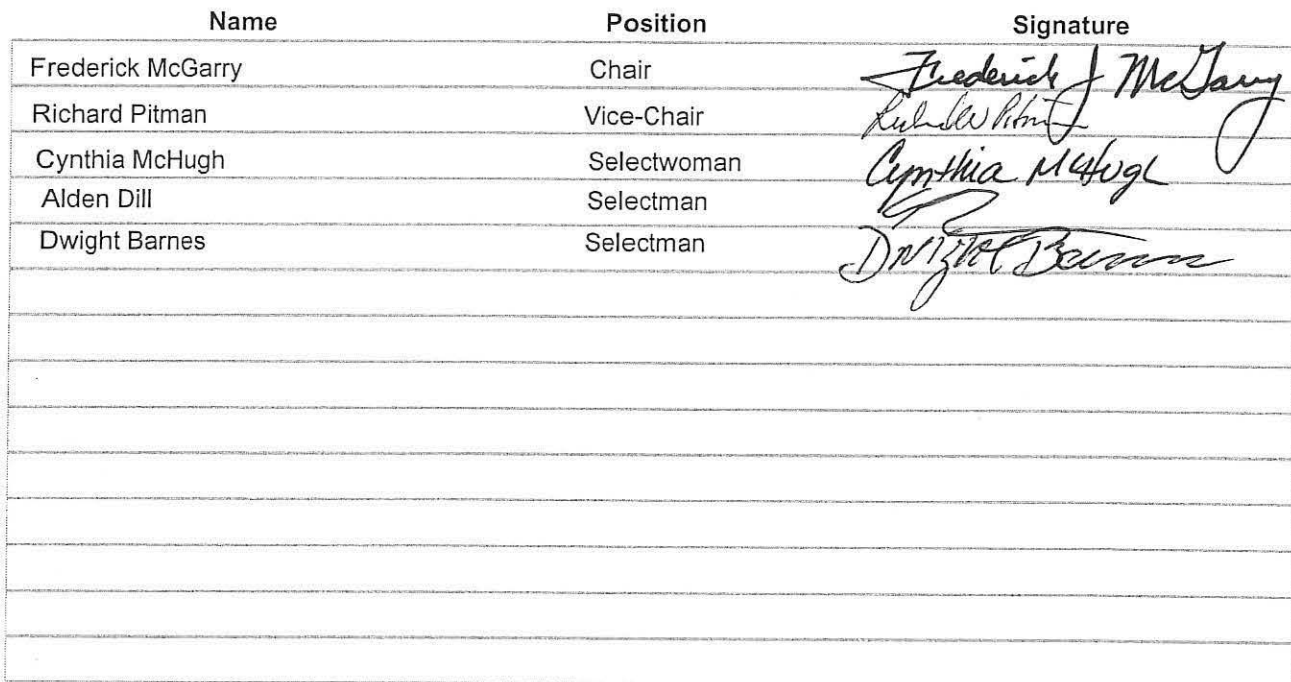 Name Position Signature
Frederick McGarry Chair Frederick J McGarry
Richard Pitman Vice-Chair
Cynthia McHugh Selectwoman Cynthia McHugh
Alden Dill Selectman
Dwight Barnes Selectman